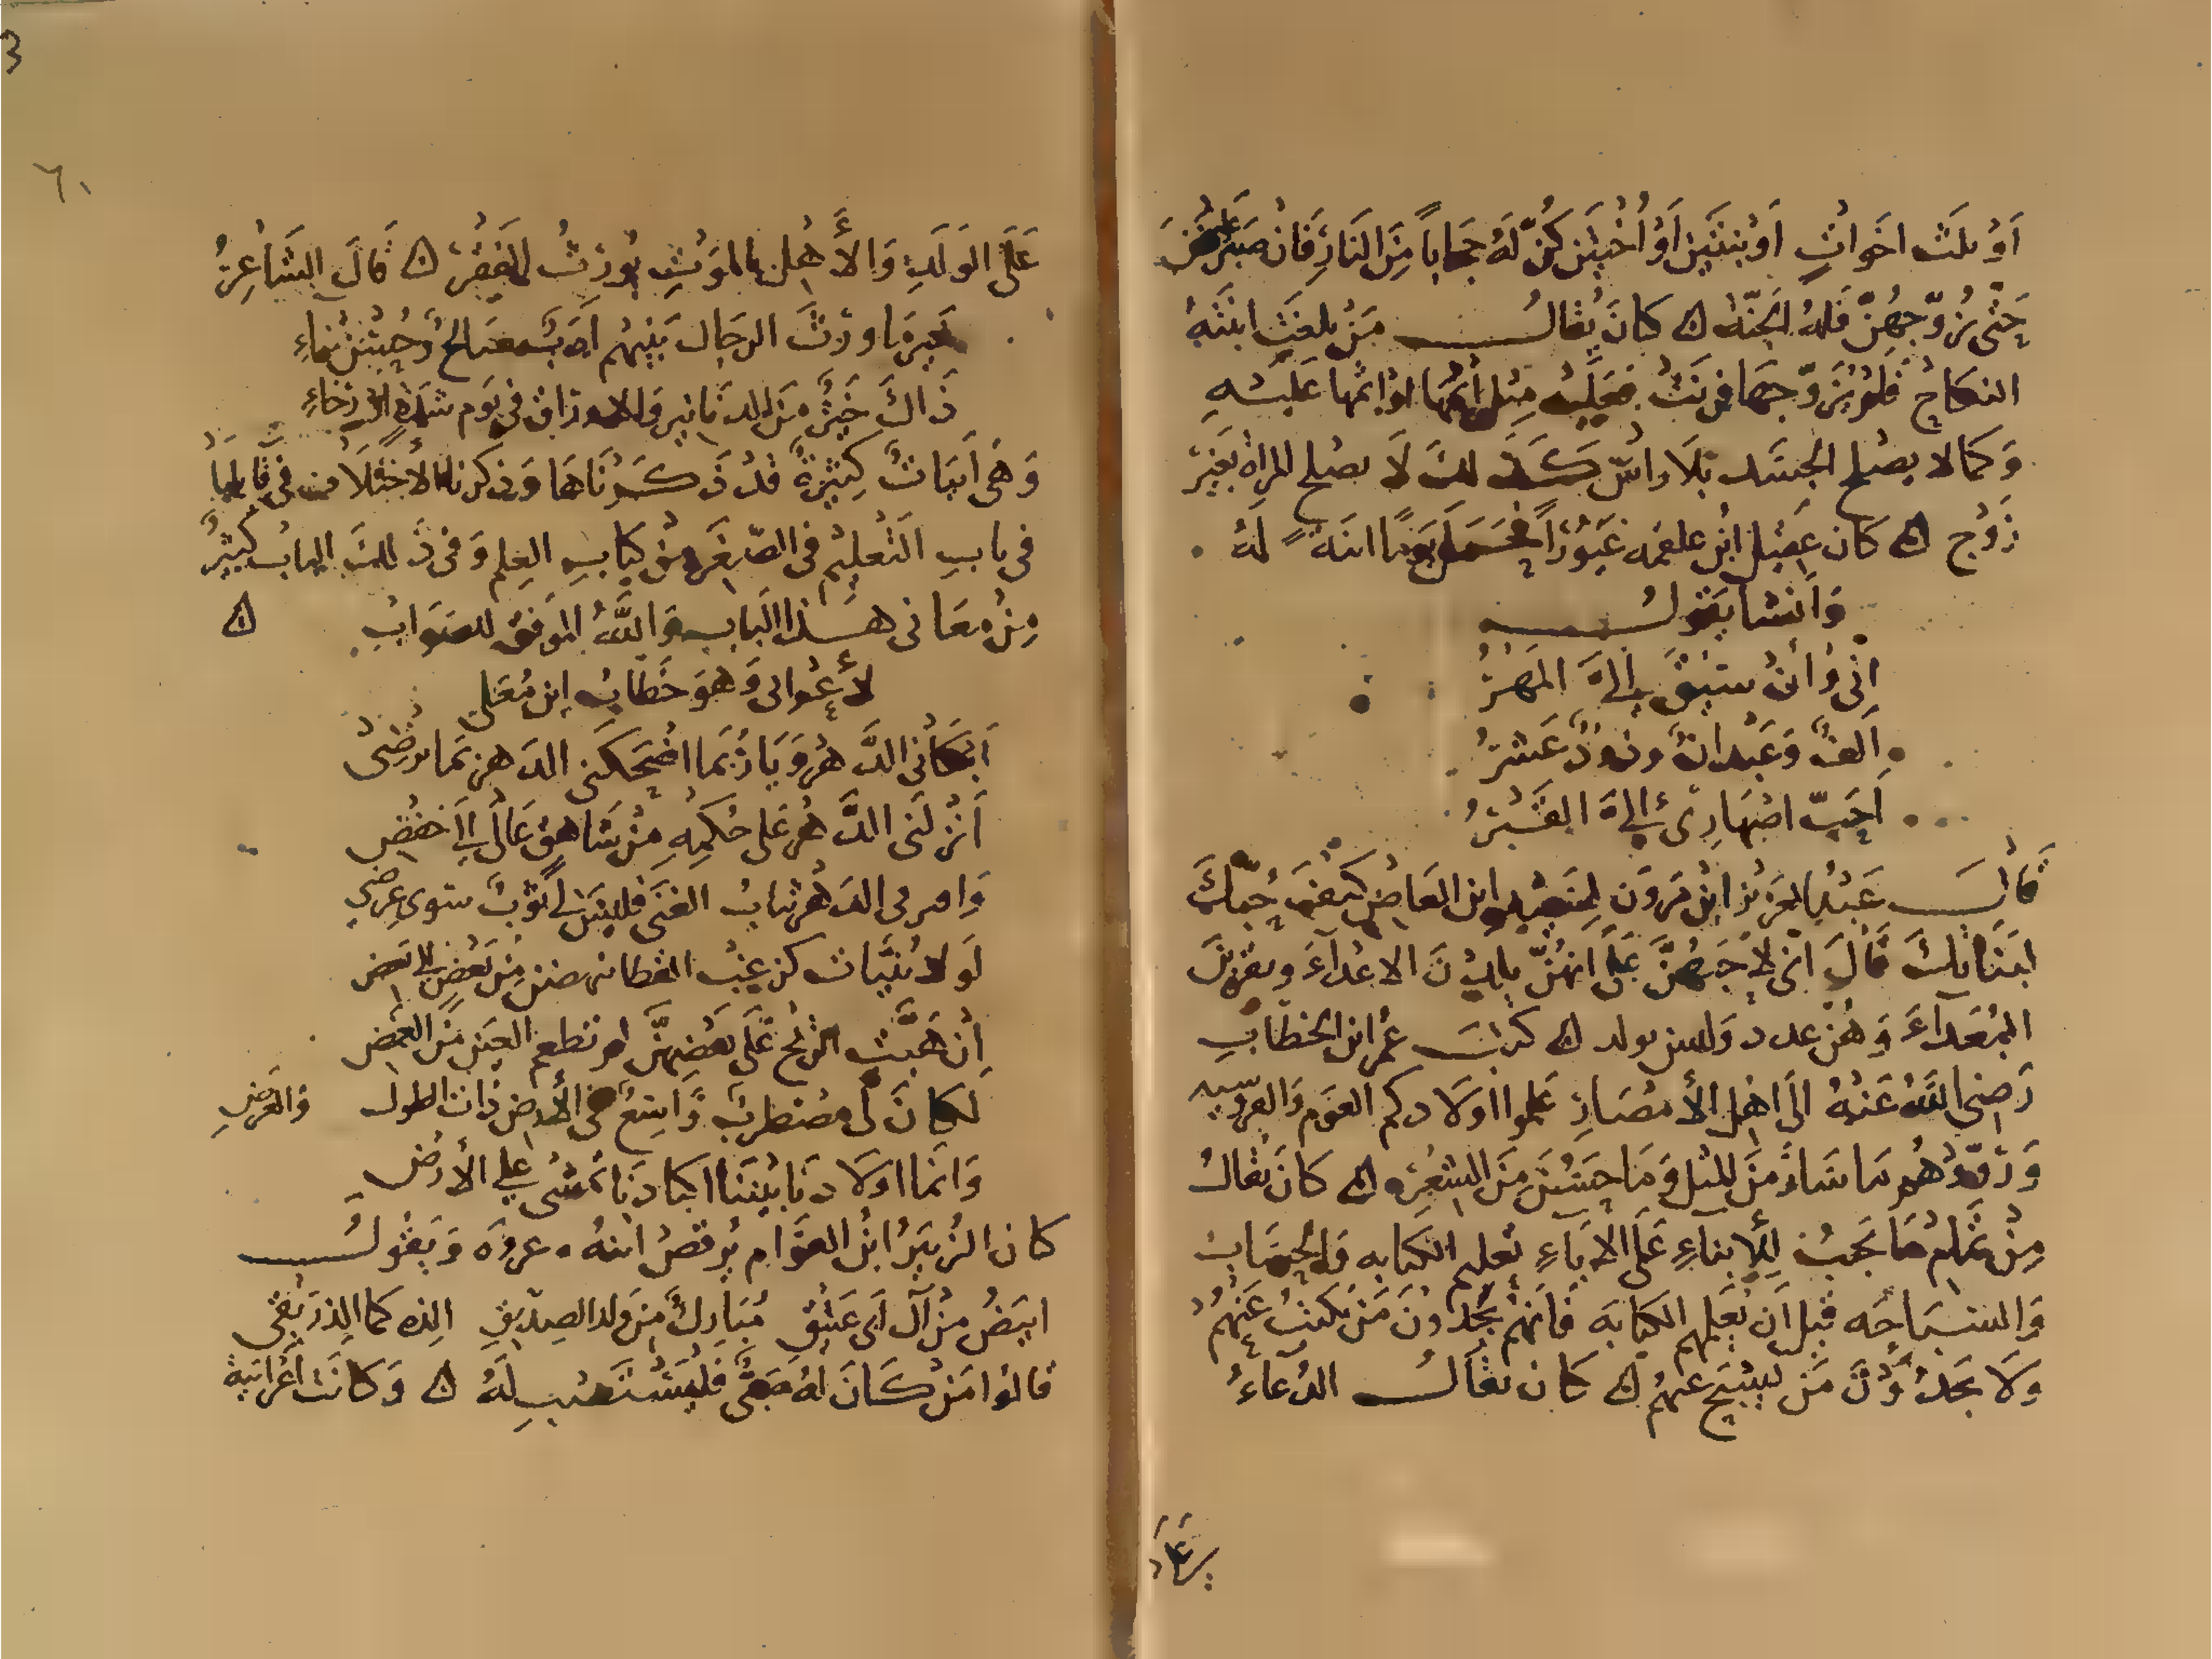 اَوْ ثلث اخَواتٍ اَوْ بنتَين اَوْ اُختين كنّ لهُ حجاباً مِنَ النارِ فَان صبر عليهن
حَتّى يزوّجهنّ فله الجنّة ۞ كانَ يُقال مَنْ بلغت ابنته
النكاح فلم يُزوّجها فزنت فعليه مثل اثمها او اثمها عليه
وَكمالا يصلح الجسَد بلا راسٍ كذلك لَا يصلح المراة بغير
زَوْج ۞ كان عقيل ابن علفه غيوراً فحمل يَوماً ابنة لهُ
وَانشا يقول
انّى وَاِنْ سيق اِلىَّ المَهْرُ
اَلفٌ وَعَبدانٌ وذودٌ عَشرُ
اَحَبّ اصْهارِى اِلىَّ القَبْرُ
قال عَبْد العزيز ابن مروَن ابن العَاص كيفَ حُبّك
لبَناتك قَالَ انى لاحبهنَّ عَلى انهُنّ يلدنَ الاعدآء ويقربنَ
البُعَدآءَ وَهُن عدد وَليس بولد ۞ كتب عمر ابن الخطّاب
رَضى اللّه عَنْهُ الى اهْل الأمصَارِ علموا اولادكم العَوم وَالفروسيه
وَرَوّوْهُم ما سَارَ مِنَ المثل وَمَا حَسُنَ مِنَ الشعْر ۞ كانَ يُقالُ
مِنْ تمام مَا يَجبُ لِلابناءِ عَلَى الابَاءِ تعليم الكتابه وَالحِسَاب
وَالسِبَاحَه قبل اَن يُعَلّمهم الكتابَه فَانهم يَجدُونَ مَنْ يكتبُ عَنهمُ
وَلَا يَجدُونَ مَن يسبَح عنهمُ ۞ كان يقَالُ الدُعَاءُ

٦١
عَلَى الوَلَدِ وَالأهْل بالموَتِ يُورِثُ الفَقْرَ ۞ قالَ الشاعِرُ
خير مَا ورّثَ الرجال بَنيهم اَدَبٌ صَالحٌ وَحُسْنُ ثناءِ
ذَاكَ خيْرٌ مِنَ الدنانير وَالاوراق فى يَوم شدةٍ او رَخاءِ
وَهىَ اَبيَاتٌ كثيرَةٌ قدْ ذكَرْنَاهَا وَذكرنا الأختلاف فى قائلهَا
فى بابِ التَعْليم فى الصّغَر مِنْ كتابِ العِلم وَفى ذَلك البابُ كثيرٌ
مِنْ مَعَانى هذا البَاب وَاللّهُ الموَفق للصَوَاب ۞
لأعرابى وَهوَ خَطّاب ابن مُعَلى
اَبكانى الدَّهْرُ وَيَا رُبما اضْحَكَنى الدَهر بَما يُرضِى
اَنْزَلَنى الدَّهرُ عَلى حُكمِهِ مِنْ شاهِقٍ عَالٍ اِلى خَفْضِ
ثيابُ الغنَى فليسَ لى ثَوبٌ سوى عِرضى
لَولا بُنيّات كزغبْ القطا مِنْ بَعْضٍ الى بَعض
اِنْ هَبَّتِ الرّيحُ عَلَى بَعْضِهنَّ لم تطعم العَين مِنَ الغمْضِ
لكانَ لى مضطربٌ وَاسِعٌ فى الأرض ذات الطول وَالعَرضِ
وَانّمَا اوَلادنَا بيْننَا اكبَادُنَا تمشى على الأرْضِ
كان الزُبَيرُ ابْنُ العَوَّام يُرقصُ ابنهُ عروَه وَيَقُولُ
ابيَضُ مِنْ آل اَبى عَتيْقِ مُبَارك مِنْ وَلد الصِدّيقِ الذه كما الذ رِيْقى
قالوُا مَنْ كَانَ لهُ صَبىٌّ فَليَسْتَصْبِ لهُ ۞ وَكانَت اَعْرَابيَة